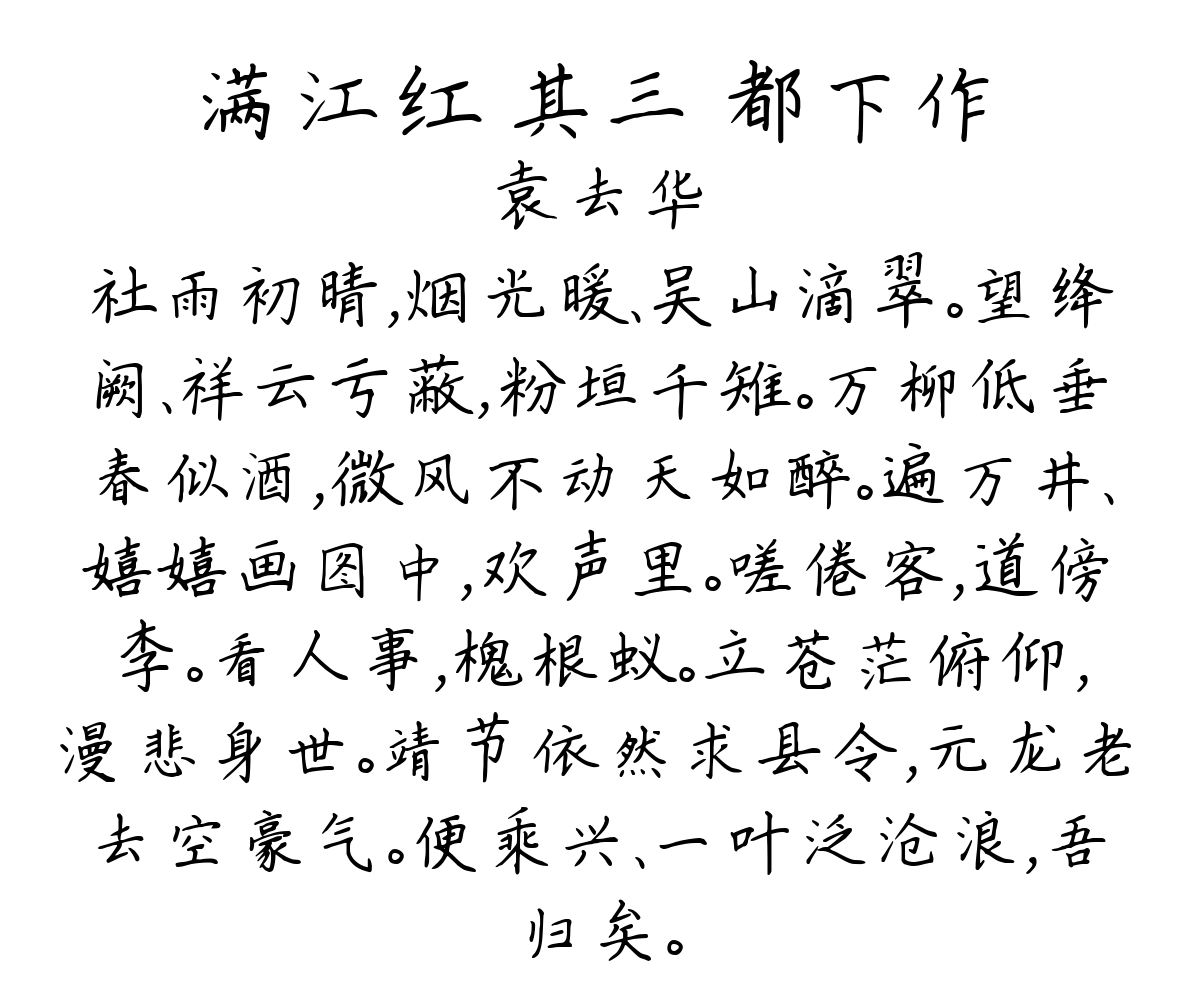 满江红 其三 都下作
袁去华
社雨初晴,烟光暖、吴山滴翠。望绛
阙、祥云亏蔽,粉垣千雉。万柳低垂
春似酒,微风不动天如醉。遍万井、
嬉嬉画图中,欢声里。嗟倦客,道傍
李。看人事,槐根蚁。立苍茫俯仰,
漫悲身世。靖节依然求县令,元龙老
去空豪气。便乘兴、一叶泛沧浪,吾
归矣。